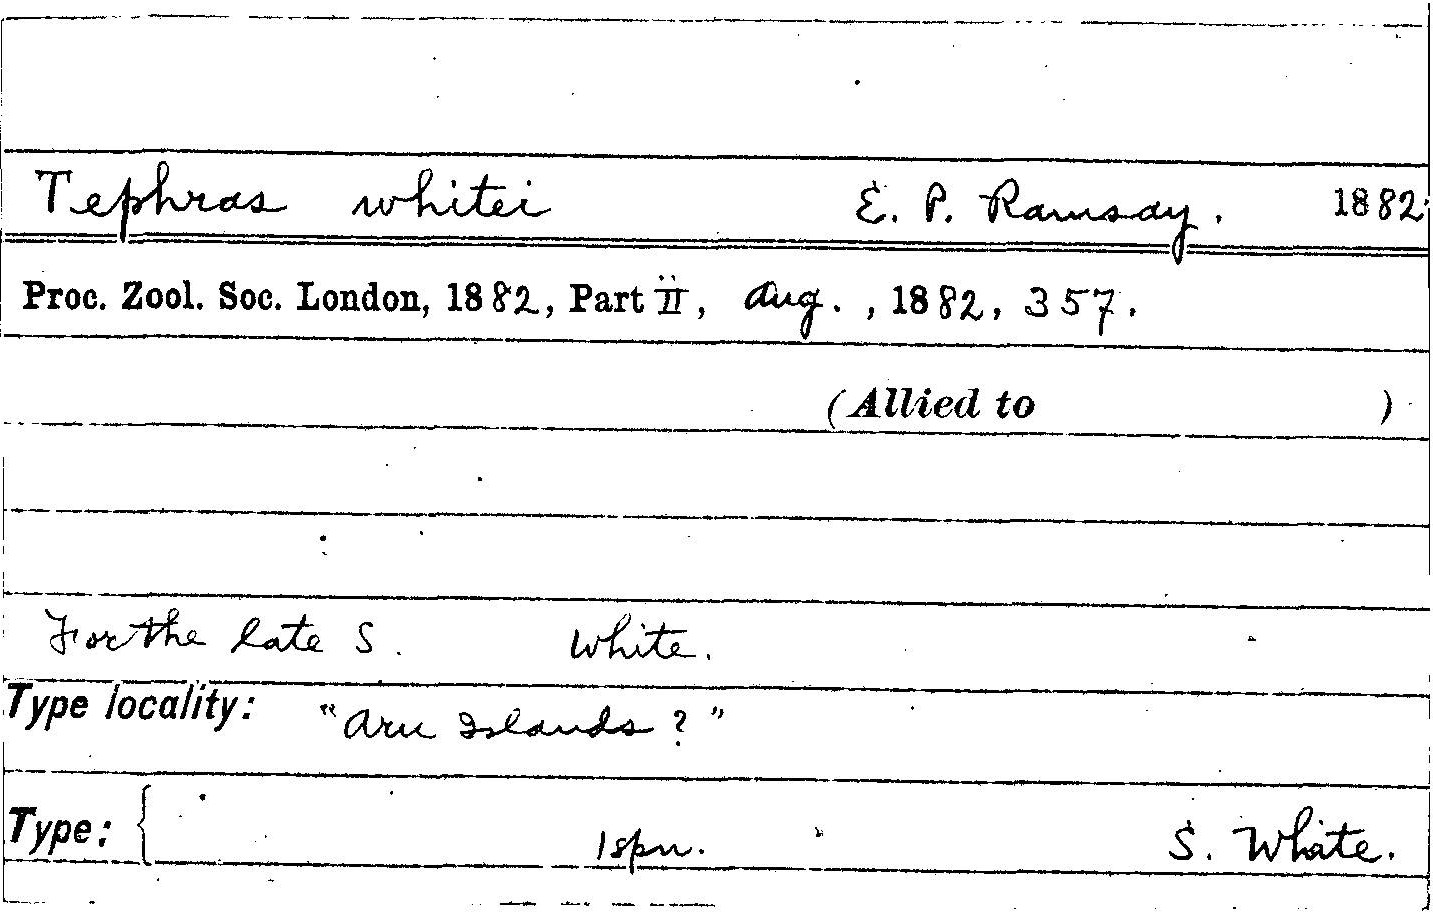 Tephras whitei E. P. Ramsay. 1882.
Proc. Zool. Soc. London, 1882, Part II, Aug., 1882, 357.
(Allied to )
For the late S. White.
Type locality: "Aru Islands?"
Type: { 1 spn. S. White.